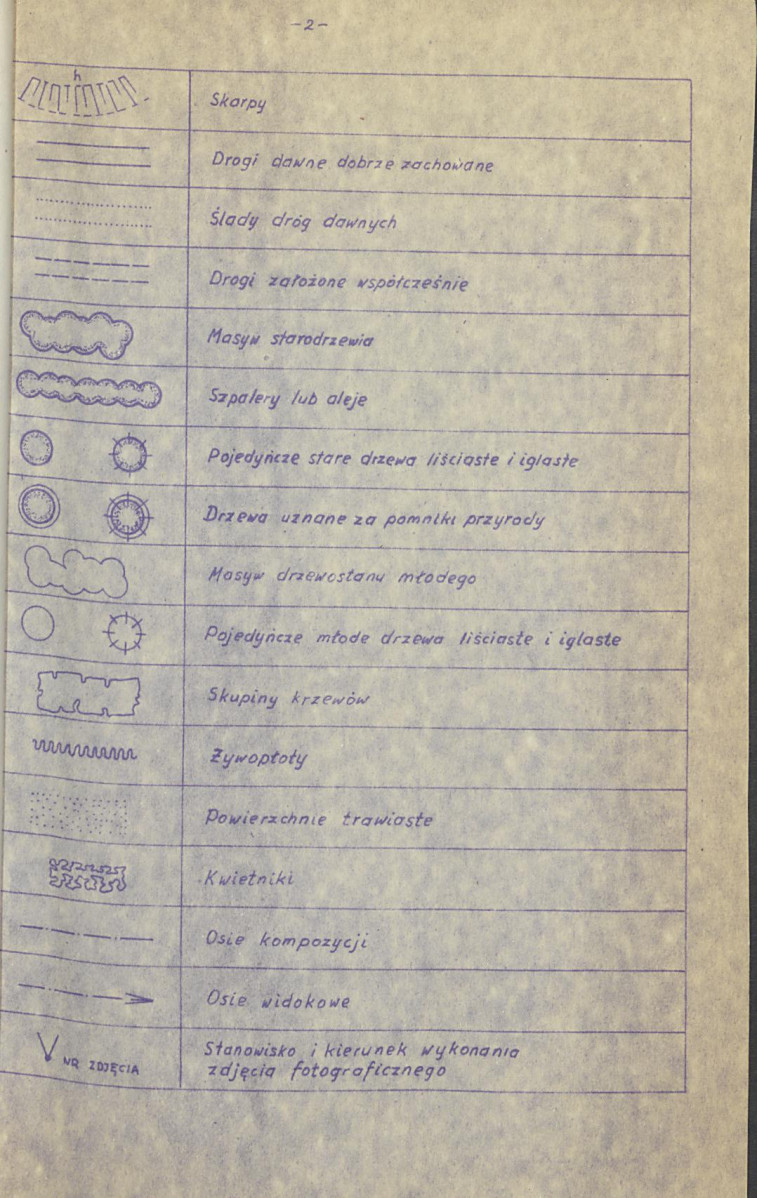 -2-
h
Skarpy
Drogi dawne dobrze zachowane
Ślady dróg dawnych
Drogi założone współcześnie
Masyw starodrzewia
Szpalery lub aleje
Pojedyńcze stare drzewa liściaste i iglaste
Drzewa uznane za pomniki przyrody
Masyw drzewostanu młodego
Pojedyńcze młode drzewa liściaste i iglaste
Skupiny krzewów
Żywopłoty
Powierzchnie trawiaste
Kwietniki
Osie kompozycji
Osie widokowe
NR ZDJĘCIA
Stanowisko i kierunek wykonania
zdjęcia fotograficznego